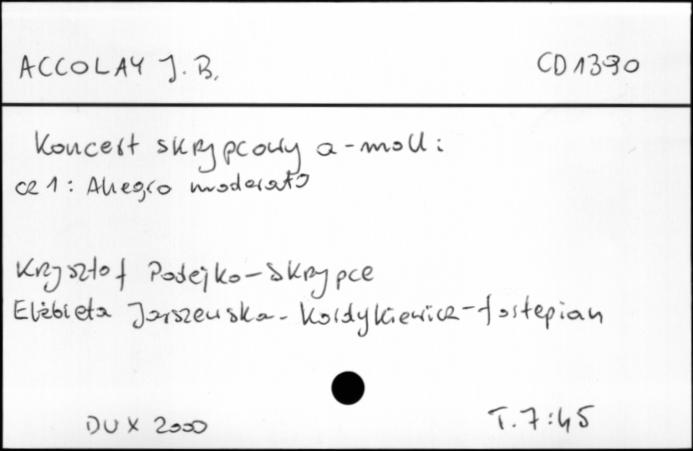 ACCOLAY J.B. CD 1390
Koncert skrzypcowy a-moll:
cz 1: Allegro moderato
Krzysztof Podejko - skrzypce
Elżbieta Jarszewska - Kordykiewicz - fortepian
DUX 2000 T. 7:45